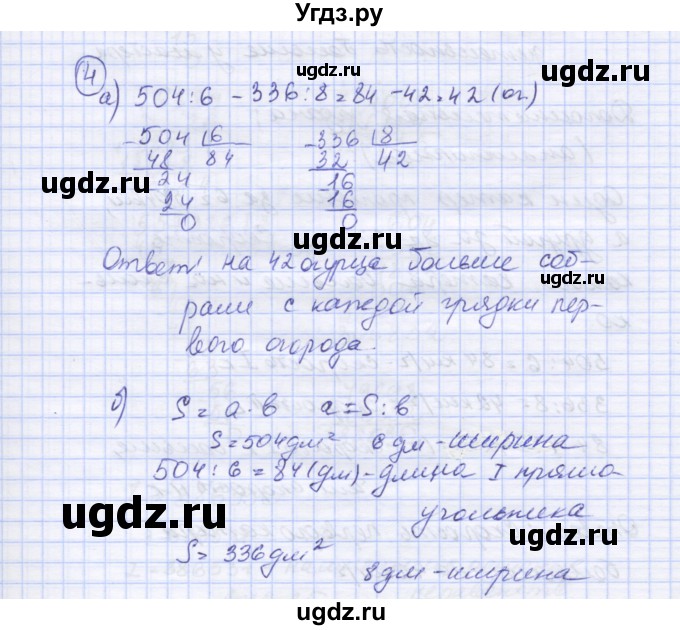 Угдз.ру
4
а) 504:6 - 336:8 = 84 - 42 = 42 (ог.)
504 | 6 336 | 8
48 84 32 42
24 16
24 16
0 0
Ответ: на 42 огурца больше соб-
рали с каждой грядки пер-
вого огорода.
б) S = a · b a = S : b
S = 504 дм² 6 дм - ширина
504 : 6 = 84 (дм) - длина I прямо
угольника
S = 336 дм²
8 дм - ширина
ugdz.ru
ugdz.ru
ugdz.ru
ugdz.ru
ugdz.ru
ugdz.ru
ugdz.ru
ugdz.ru
ugdz.ru
ugdz.ru
ugdz.ru